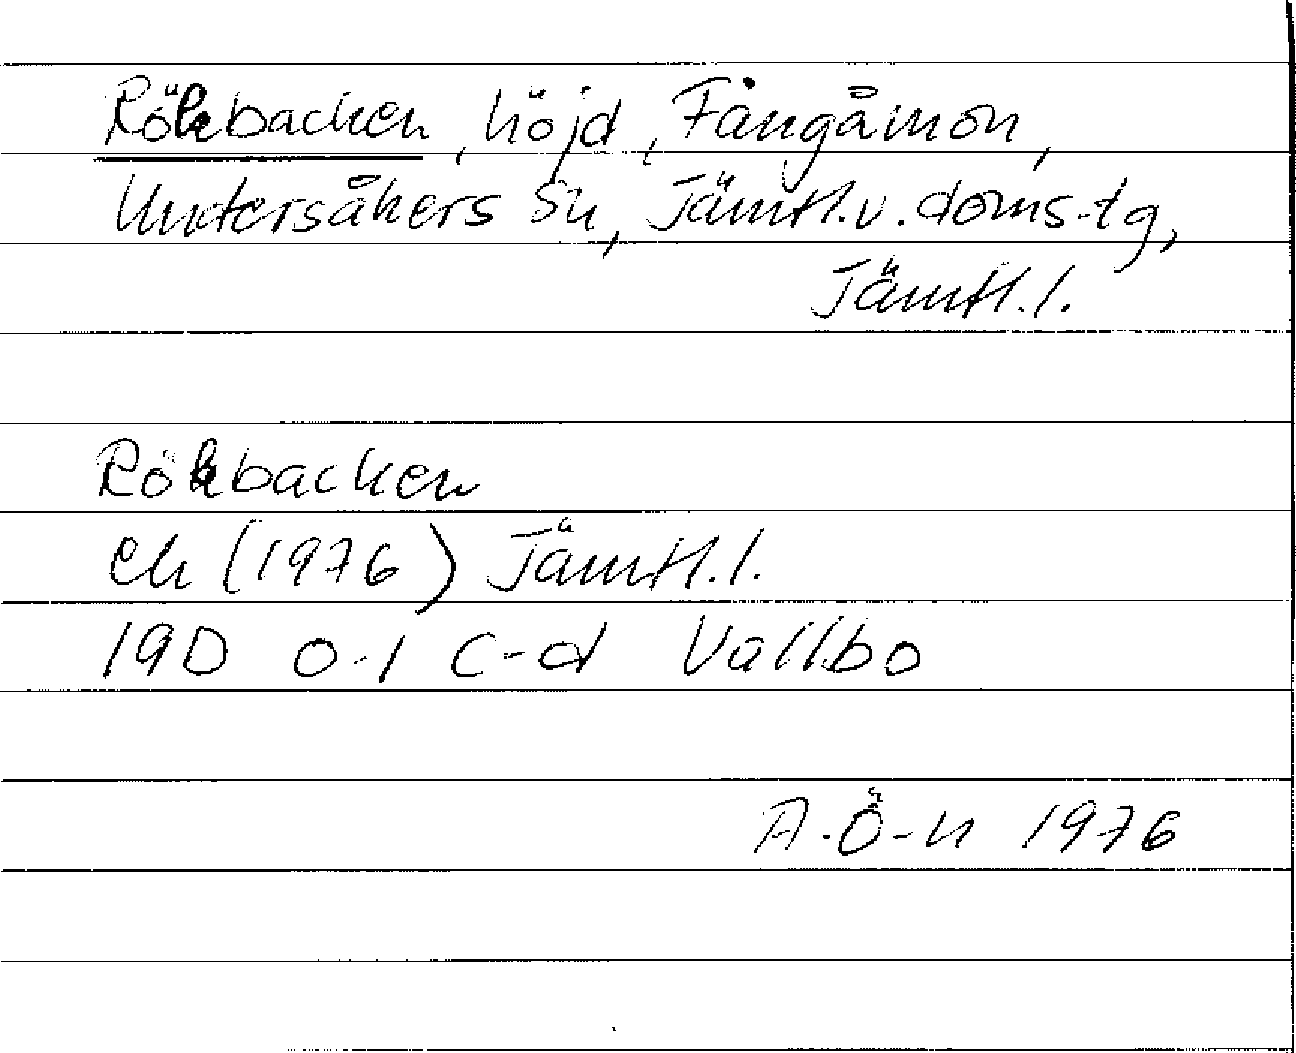 Rökbacken, höjd, Fångåmon,
Undersåkers sn, Jämtl.v. doms.tg,
Jämtl.l.
Rökbacken
ek (1976) Jämtl.l.
19D 0-1 c-d Vallbo
A.Ö-n 1976